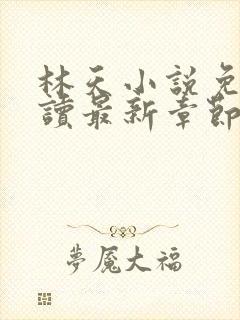 林天小說免
讀最新章節
夢魘大福